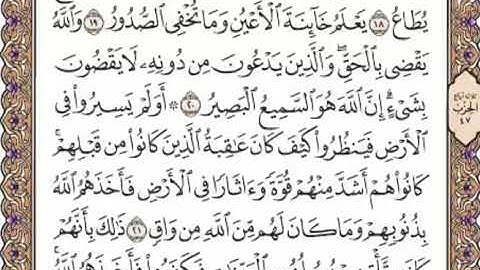 يُطَاعُ ١٨ يَعْلَمُ خَآئِنَةَ ٱلْأَعْيُنِ وَمَا تُخْفِى ٱلصُّدُورُ ١٩ وَٱللَّهُ
يَقْضِى بِٱلْحَقِّ وَٱلَّذِينَ يَدْعُونَ مِن دُونِهِۦ لَا يَقْضُونَ
بِشَىْءٍ إِنَّ ٱللَّهَ هُوَ ٱلسَّمِيعُ ٱلْبَصِيرُ ٢٠ ۞ أَوَلَمْ يَسِيرُوا۟ فِى
ٱلْأَرْضِ فَيَنظُرُوا۟ كَيْفَ كَانَ عَٰقِبَةُ ٱلَّذِينَ كَانُوا۟ مِن قَبْلِهِمْ ۚ
كَانُوا۟ هُمْ أَشَدَّ مِنْهُمْ قُوَّةً وَءَاثَارًا فِى ٱلْأَرْضِ فَأَخَذَهُمُ ٱللَّهُ
بِذُنُوبِهِمْ وَمَا كَانَ لَهُم مِّنَ ٱللَّهِ مِن وَاقٍ ٢١ ذَٰلِكَ بِأَنَّهُمْ
الحزب
٤٧